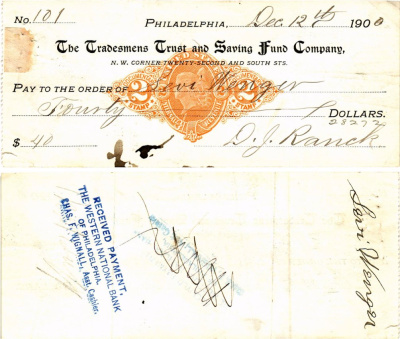 No. 101 Philadelphia, Dec. 12th 1900
The Tradesmens Trust and Saving Fund Company,
N. W. CORNER TWENTY-SECOND AND SOUTH STS.
PAY TO THE ORDER OF Levi Wenger
Fourty DOLLARS.
28272
$ 40 D. J. Ranck
RECEIVED PAYMENT,
THE WESTERN NATIONAL BANK
OF PHILADELPHIA.
CHAS. F. WIGNALL, Asst. Cashier.
Levi Wenger